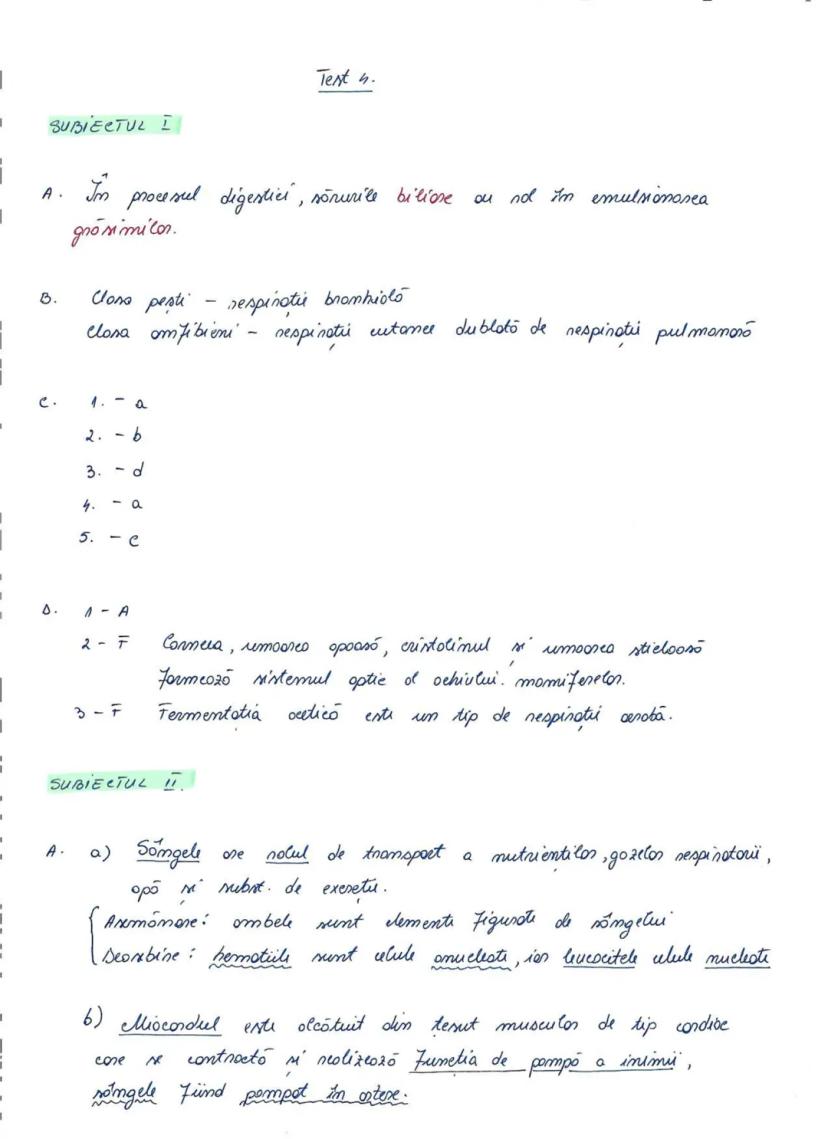 Test 4.
SUBIECTUL I
A. În procesul digestiei, sărurile biliare au rol în emulsionarea
grăsimilor.
B. Clasa pești – respirație branhială
Clasa amfibieni – respirație cutanee dublată de respirație pulmonară
C. 1. – a
2. – b
3. – d
4. – a
5. – c
D. 1 – A
2 – F Corneea, umoarea apoasă, cristalinul și umoarea sticloasă
formează sistemul optic al ochiului mamiferelor.
3 – F Fermentația acetică este un tip de respirație aerobă.
SUBIECTUL II.
A. a) Sângele are rolul de transport a nutrienților, gazelor respiratorii,
apă și subst. de excreție.
Asemănare: ambele sunt elemente figurate de sângelui
Deosebire: hematiile sunt celule anucleate, iar leucocitele celule nucleate
b) Miocardul este alcătuit din țesut muscular de tip cardiac
care se contractă și realizează funcția de pompă a inimii,
sângele fiind pompat în artere.